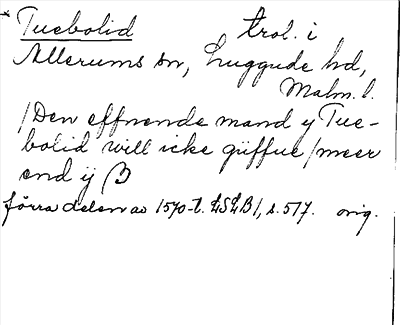 * Tuebolid trol. i
Allerums sn, Luggude hd,
Malm. l.
/Den effnende mand y Tue-
bolid will icke giiffue /meer
end ij β
förra delen av 1570-t. LSLB/, s. 517. orig.